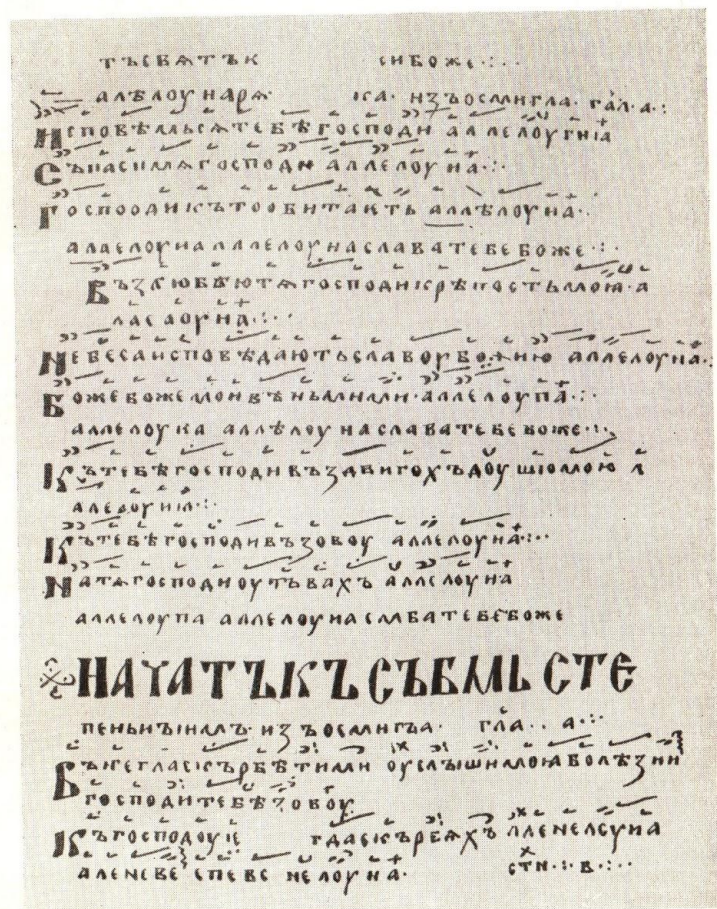 тъсвѧтък сибоже·:··
алѣлоуиарѧ· ка· изъосмигла· гл҃а·а·:
исповѣмьсѧтебѣгосподи аллелоугиıа
съпасимѧгосподи аллелоуиа·:·
госпоодикътообитакть аллѣлоуиа··
алаелоуиаллленлоуиаславатебебоже·:·
възлюбѣютѧгосподикрѣпостьмоıа·а
ласаоуиа·:··
небесаисповѣдаютьславоубожию аллелоуиа·:
божебожемоивъньмими·аллелоупа·:·
аллелоука аллѣлоу наславатебебоже·:·
кътебѣгосподивъздвигохъдоушюмою л
алелоуиıа·:·
кътебѣгосподивъзовоу аллелоуиа·:··
натѧгосподиоупъвахъ аллелоуиа
аллелоупа аллелоуиаславатебебоже
начатъкъсъвмь сте
пеньнъıимъ·изъосмигъа· гл҃а··а·:·
вънегласкърбѣтими оуслъıшимоıаболѣзни
господитебѣзовоу
къгосподоук гдаскърбяхъ